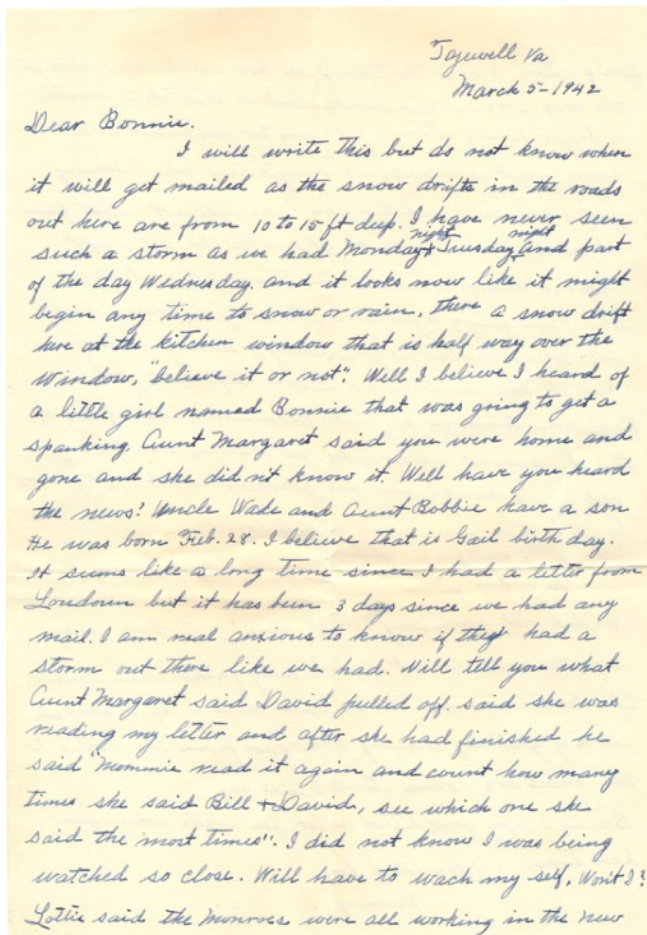 Tazewell Va
March 5-1942
Dear Bonnie.
I will write this but do not know when
it will get mailed as the snow drifts in the roads
out here are from 10 to 15 ft deep. I have never seen
night night
such a storm as we had Monday + Tuesday + and part
of the day Wednesday. and it looks now like it might
begin any time to snow or rain, there a snow drift
here at the kitchen window that is half way over the
window, "believe it or not". Well I believe I heard of
a little girl named Bonnie that was going to get a
spanking. Aunt Margaret said you were home and
gone and she did n't know it. Well have you heard
the news? Uncle Wade and Aunt Bobbie have a son
He was born Feb. 28. I believe that is Gail birth day.
It seems like a long time since I had a letter from
Loudoun but it has been 3 days since we had any
mail. I am real anxious to know if they had a
storm out there like we had. Will tell you what
Aunt Margaret said David pulled off. said she was
reading my letter and after she had finished he
said "Mommie read it again and count how many
times she said Bill + David, see which one she
said the most times". I did not know I was being
watched so close. Will have to wach my self, Won't I?
Lottie said the Monroes were all working in the new